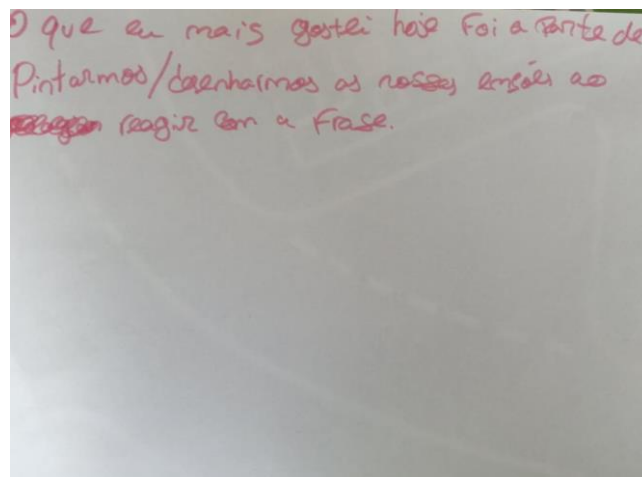 O que eu mais gostei hoje Foi a Parte de
Pintarmos/desenharmos as nossas emsões ao
reagir com a Frase.